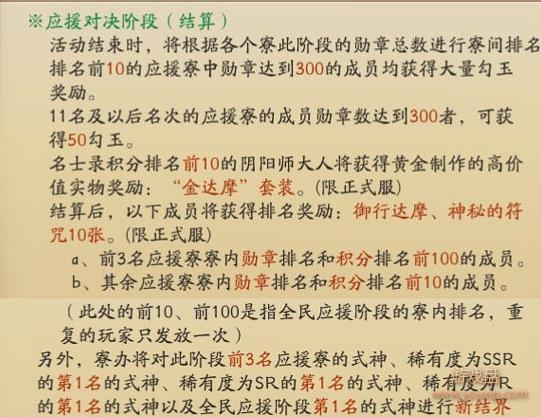 ※应援对决阶段（结算）
活动结束时，将根据各个寮此阶段的勋章总数进行寮间排名
排名前10的应援寮中勋章达到300的成员均获得大量勾玉
奖励。
11名及以后名次的应援寮的成员勋章数达到300者，可获
得50勾玉。
名士录积分排名前10的阴阳师大人将获得黄金制作的高价
值实物奖励：“金达摩”套装。(限正式服)
结算后，以下成员将获得排名奖励：御行达摩、神秘的符
咒10张。(限正式服)
a、前3名应援寮寮内勋章排名和积分排名前100的成员。
b、其余应援寮寮内勋章排名和积分排名前10的成员。
（此处的前10、前100是指全民应援阶段的寮内排名，重
复的玩家只发放一次）
另外，寮办将对此阶段前3名应援寮的式神、稀有度为SSR
的第1名的式神、稀有度为SR的第1名的式神、稀有度为R
的第1名的式神以及全民应援阶段第1名的式神进行新结界